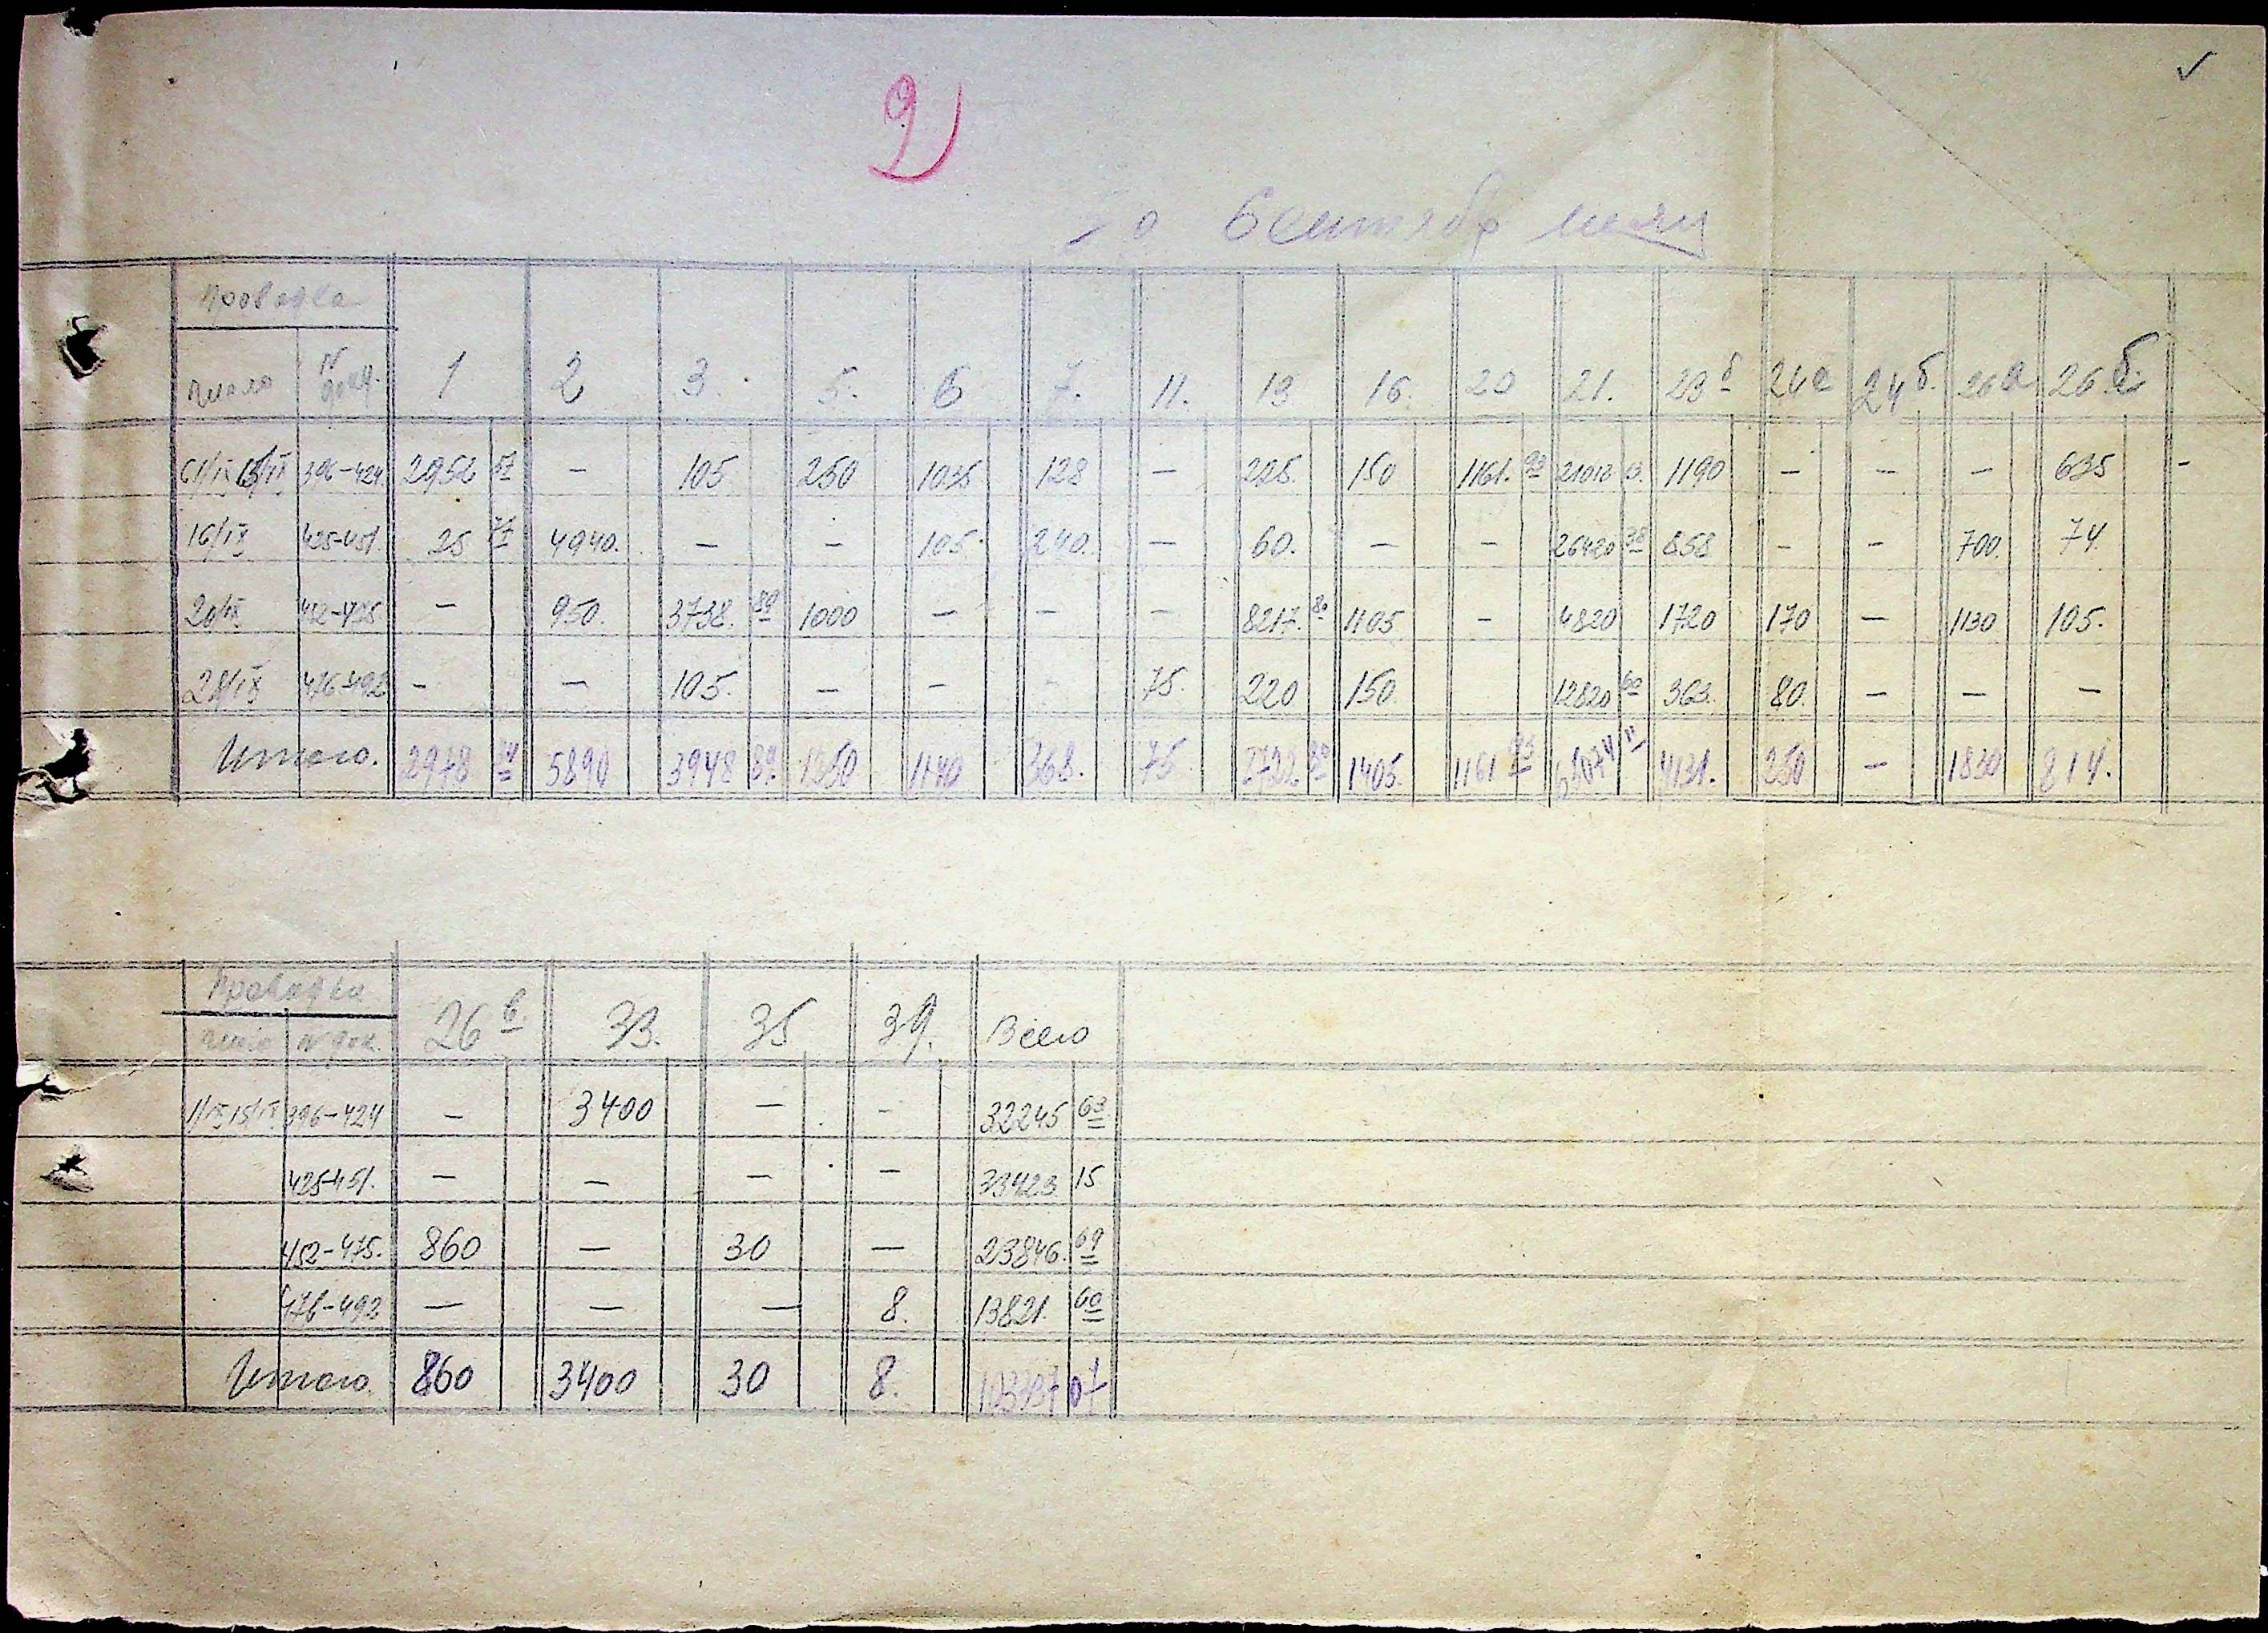 2
Сентябр месяц
Проводка
число № док. 1 2 3. 5. 6 7. 11. 13 16. 20 21. 23б 24а 24б. 26а 26б.
1/IX 15/IX 396-424 2952 57 — 105 250 1035 128 — 225. 150 1161. 93 21013 13. 1190 — — — 635 -
16/IX 425-451. 25 77 4940. — — 105. 240. — 60. — — 26420 38 858 — — 700. 74.
20/IX 452-475 — 950. 3738. 89 1000 — — — 8217. 80 1105 — 4820 1720 170 — 1130 105.
28/IX 476-492 — — 105. — — — 75. 220 150 12820 60 363. 80. — — —
Итого. 2978 34 5890 3948 89. 1250 1140 368. 75. 80 1405. 1161 93 11 4131. 250 — 1830 814.
Проводка
число № док. 26в. 33. 35 39. Всего
1/IX 15/IX 396-424 — 3400 — — 32245 63
425-451. — — — — 33423. 15
452-475. 860 — 30 — 23846. 69
476-492 — — — 8. 13821. 60
Итого. 860 3400 30 8. 103337 07